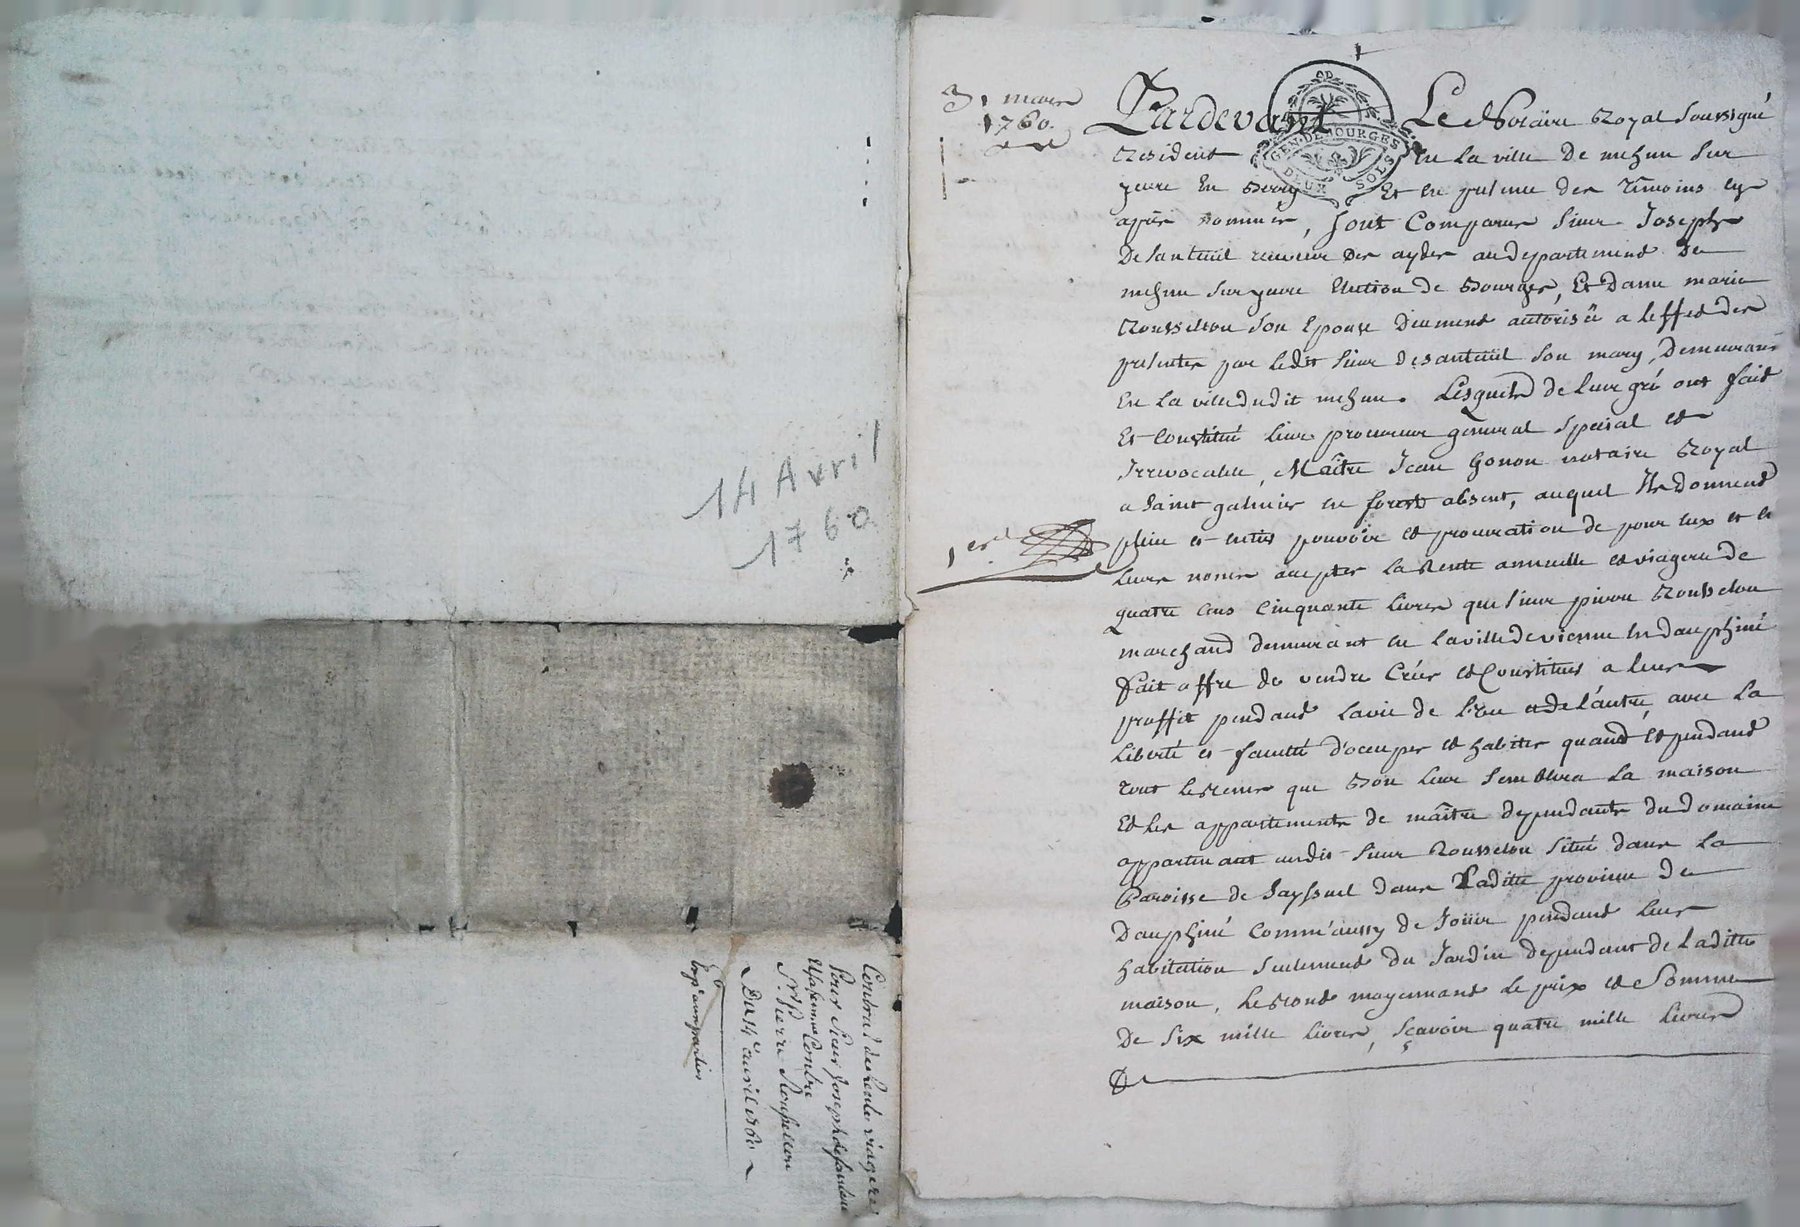 14 Avril
1760
Contrat de Rente viagere
Pour Sieur Joseph desanteul
Et sa femme Contre
Sr. Pierre Rousselon
Du 14e avril 1760
Exp. aux parties
31 mars
1760.
Pardevant Le Notaire Royal soussigné
GEN. DE BOURGES
DEUX SOLS
Resident En La ville De mehun sur
yevre En Berry Et en presence des Témoins cy
après nommés, sont Comparus sieur Joseph
Desanteuil receveur des aydes au departement De
mehun sur yevre Election de Bourges, Et Dame marie
Rousselon son Epouse Deument autorisée a leffet des
presentes par ledit sieur desanteüil son mary, Demeurans
En La ville dudit mehun. Lesquels de leur gré ont fait
Et Constitué leur procureur general special et
Irrevocable, Maître Jean Gonon notaire Royal
a saint galmier en forest absent, auquel Ils Donnent
plein et entier pouvoir et procuration de pour eux et en
leurs noms accepter La Rente annuelle et viagere de
quatre cens cinquante livres que sieur pierre Rousselon
marchand demeurant en la ville de vienne En dauphiné
fait offre de vendre Créer et Constituer a leur
proffit pendant la vie de l'un et de l'autre, avec La
Liberté et faculté d'occuper et habiter quand et pendant
tout le tems que Bon leur semblera La maison
Et les appartements de maître dependants du Domaine
appartenant audit sieur Rousselon situé dans La
Paroisse de Sayssuel dans Laditte province de
Dauphiné Comm'aussy de Joüir pendant leur
habitation seulement du Jardin dependant de Laditte
maison, Le tout moyennant le prix et Somme
De Six mille livres, sçavoir quatre mille livres